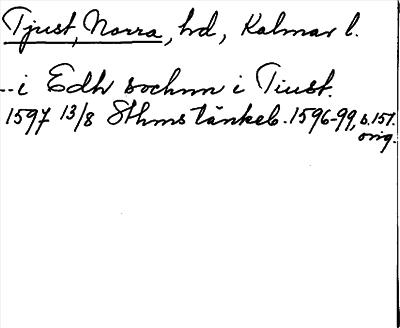 Tjust, Norra, hd, Kalmar l.
..i Edh sochnn i Tiust.
1597 13/8 Sthms tänkeb. 1596-99, s. 151.
orig.